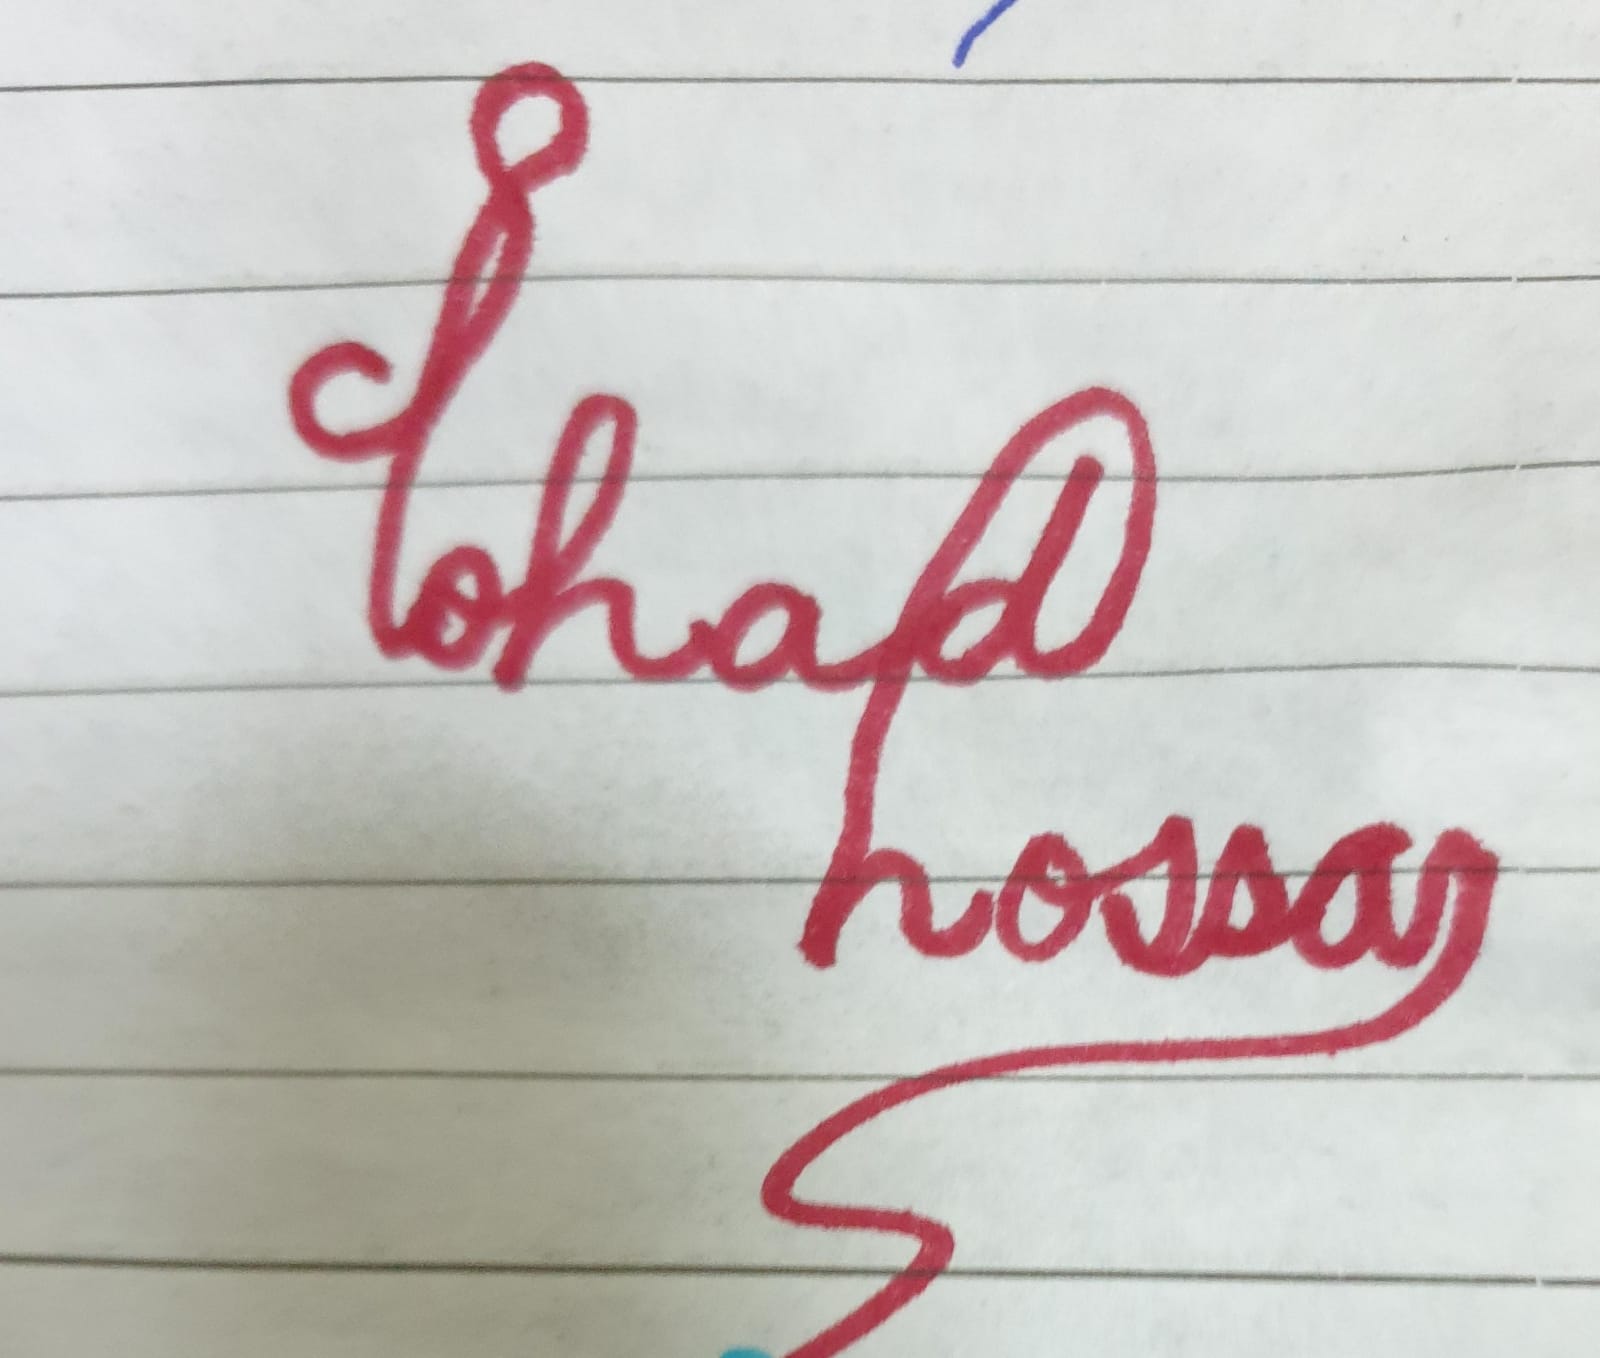 Tohad
hossan